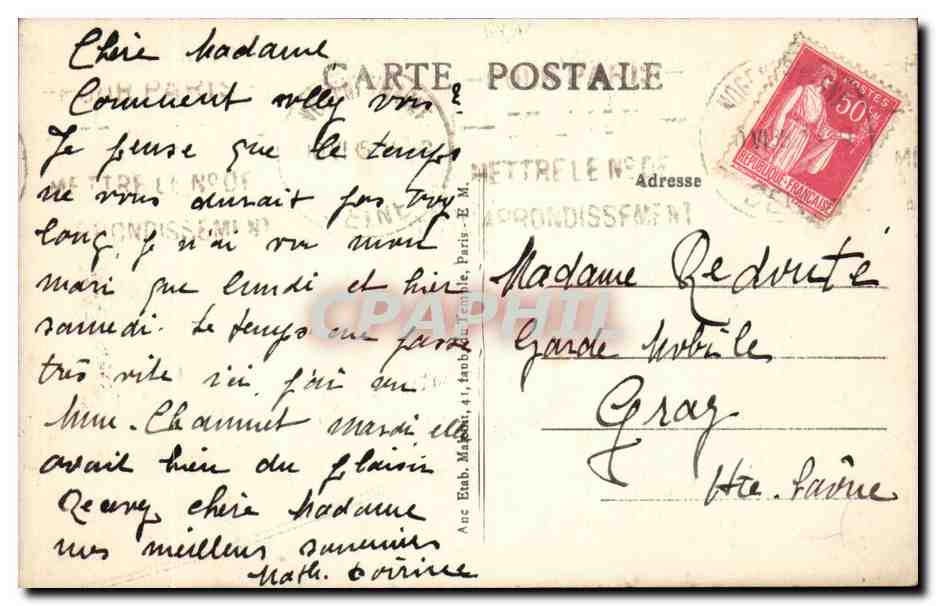 Chère Madame
CARTE POSTALE
Comment allez vous ?
Je pense que le temps
ne vous durait pas trop
long, je n'ai vu mon
mari que lundi et hier
samedi. Le temps me passe
très vite ici j'ai vu
Mme. mardi elle
avait bien du plaisir
Recevez chère Madame
mes meilleurs souvenirs
Math.
SUR PARIS
METTRE LE No DE
ARRONDISSEMENT
METTRE LE No DE
ARRONDISSEMENT
SEINE
POSTES
50c
REPUBLIQUE FRANCAISE
Adresse
Madame Redouté
Garde Mobile
Gray
Hte. Saône
Anc Etab. Malcuit, 41, faub. du Temple, Paris - E M.
CPAPHIL